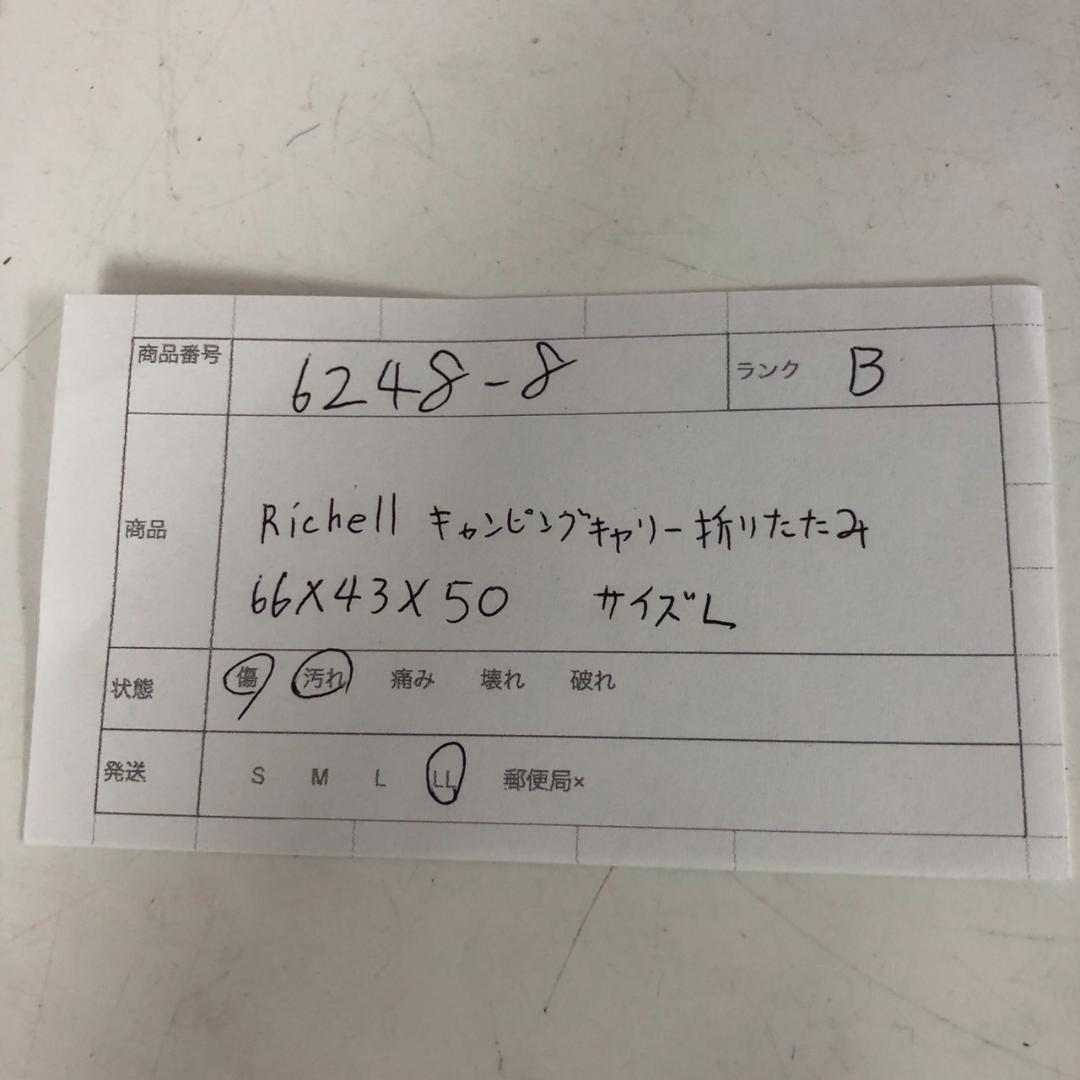 商品番号 6248-8 ランク B
商品 Richell キャンピングキャリー折りたたみ
66×43×50 サイズL
状態 傷 汚れ 痛み 壊れ 破れ
発送 S M L LL 郵便局×